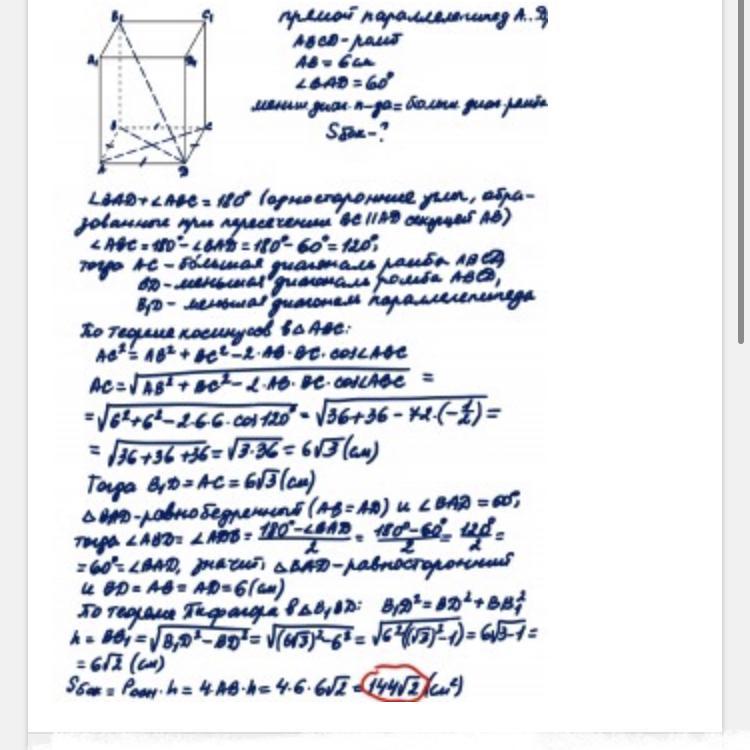 B₁ C₁
A₁ D₁
B C
A D
прямой параллелепипед A..D₁
ABCD - ромб
AB = 6 см
∠BAD = 60°
меньш диаг. п-да = больш диаг. ромба
Sбок - ?
∠BAD + ∠ABC = 180° (односторонние углы, обра-
зованные при пересечении BC || AD секущей AB)
∠ABC = 180° - ∠BAD = 180° - 60° = 120°,
тогда AC - большая диагональ ромба ABCD,
BD - меньшая диагональ ромба ABCD,
B₁D - меньшая диагональ параллелепипеда
По теореме косинусов в △ABC:
AC² = AB² + BC² - 2·AB·BC·cos∠ABC
AC = √(AB² + BC² - 2·AB·BC·cos∠ABC) =
= √(6² + 6² - 2·6·6·cos120°) = √(36 + 36 - 72·(-1/2)) =
= √(36 + 36 + 36) = √(3·36) = 6√3 (см)
Тогда B₁D = AC = 6√3 (см)
△BAD - равнобедренный (AB = AD) и ∠BAD = 60°,
тогда ∠ABD = ∠ADB = (180° - ∠BAD)/2 = (180° - 60°)/2 = 120°/2 =
= 60° = ∠BAD, значит, △BAD - равносторонний
и BD = AB = AD = 6 (см)
По теореме Пифагора в △B₁BD: B₁D² = BD² + BB₁²
h = BB₁ = √(B₁D² - BD²) = √((6√3)² - 6²) = √(6²((√3)² - 1)) = 6√(3-1) =
= 6√2 (см)
Sбок = Pосн · h = 4·AB·h = 4·6·6√2 = 144√2 (см²)